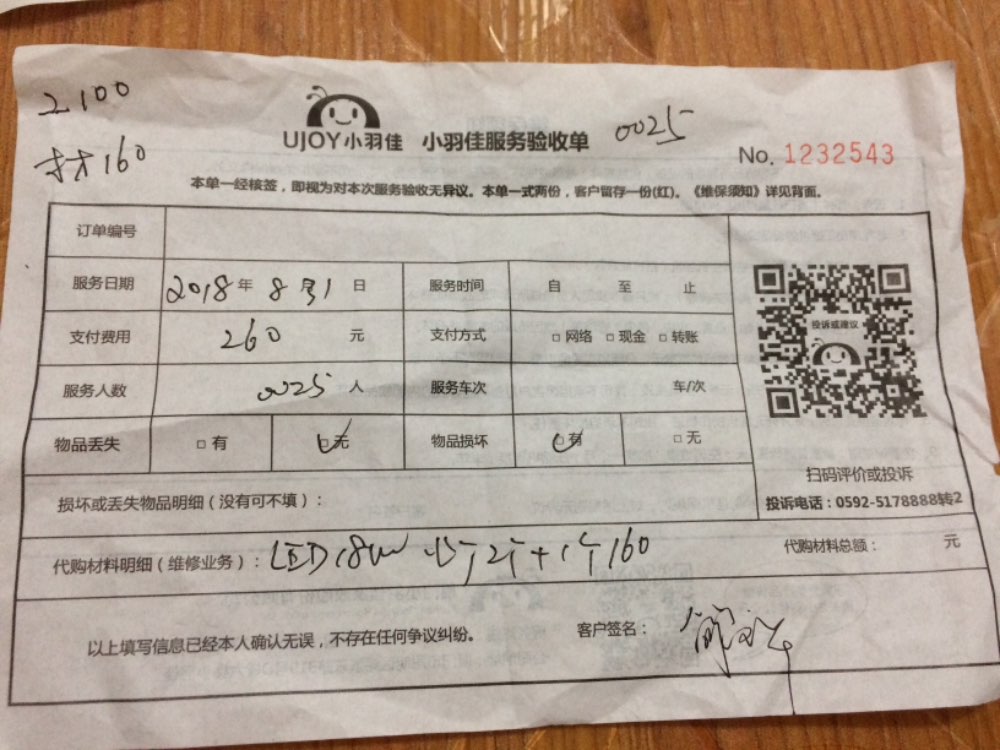 2100
材160
UJOY小羽佳 小羽佳服务验收单 0025
No. 1232543
本单一经核签，即视为对本次服务验收无异议。本单一式两份，客户留存一份(红)。《维保须知》详见背面。
订单编号
服务日期 2018年 8月31日 服务时间 自 至 止
支付费用 260 元 支付方式 □网络 □现金 □转账
投诉或建议
服务人数 0025 人 服务车次 车/次
物品丢失 □有 □无 物品损坏 □有 □无
扫码评价或投诉
投诉电话：0592-5178888转2
损坏或丢失物品明细（没有可不填）：
代购材料明细（维修业务）：LED18W 灯2个+1个160 代购材料总额： 元
以上填写信息已经本人确认无误，不存在任何争议纠纷。 客户签名：